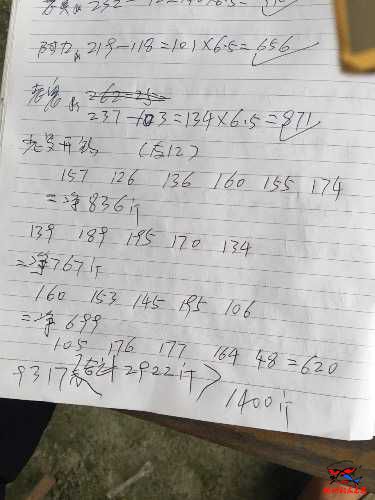 232-
阿力 219-118=101×6.5=656
262=25
237-103=134×6.5=871
(后12)
157 126 136 160 155 174
=净836斤
139 189 195 170 134
=净767斤
160 153 145 195 106
=净699
105 176 177 164 48=620
9317 2922斤
1400斤